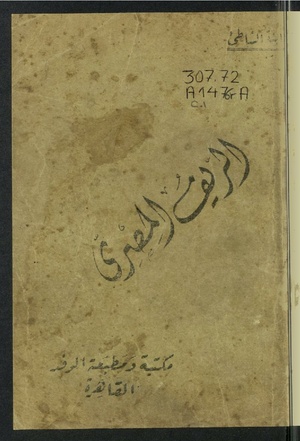 الشاطئ
307.72
A147rA
C.1
الريف المصرى
مكتبة ومطبعة الوفد
القاهرة